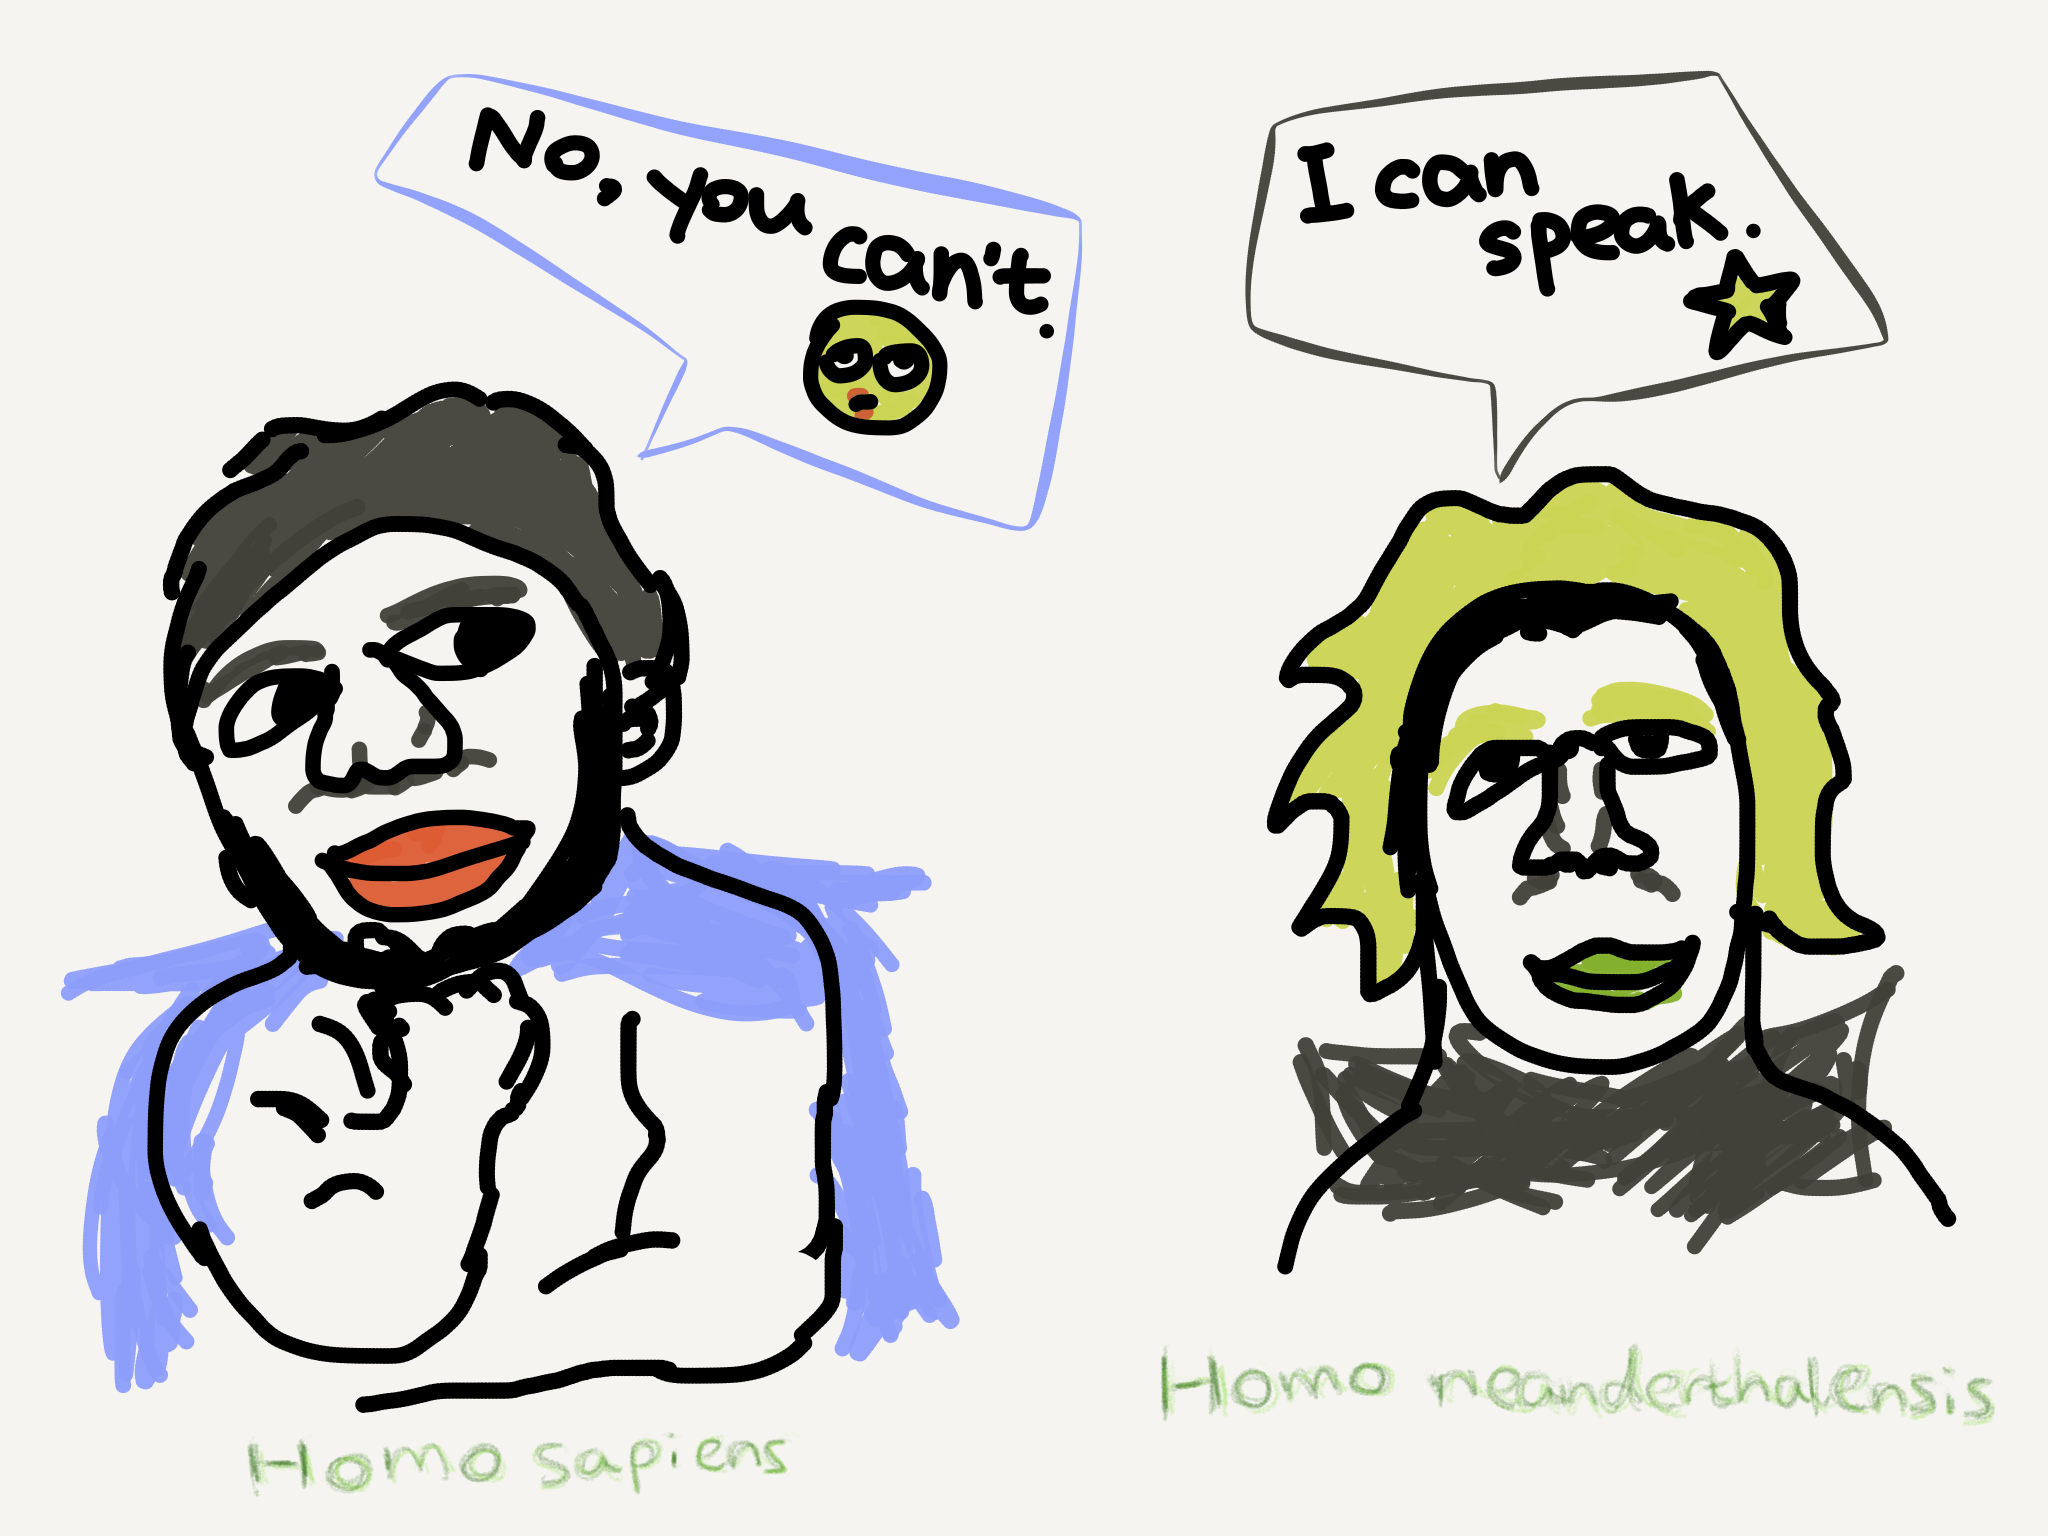 No, you
can't.
I can
speak.
Homo sapiens
Homo neanderthalensis